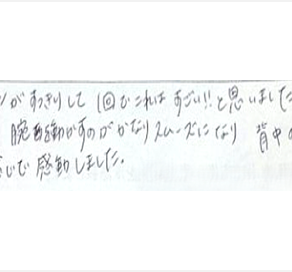 がすっきりして 1回でこれは すごい!!と思いました
腕を動かすのが かなりスムーズになり 背中の
感じで感動しました.